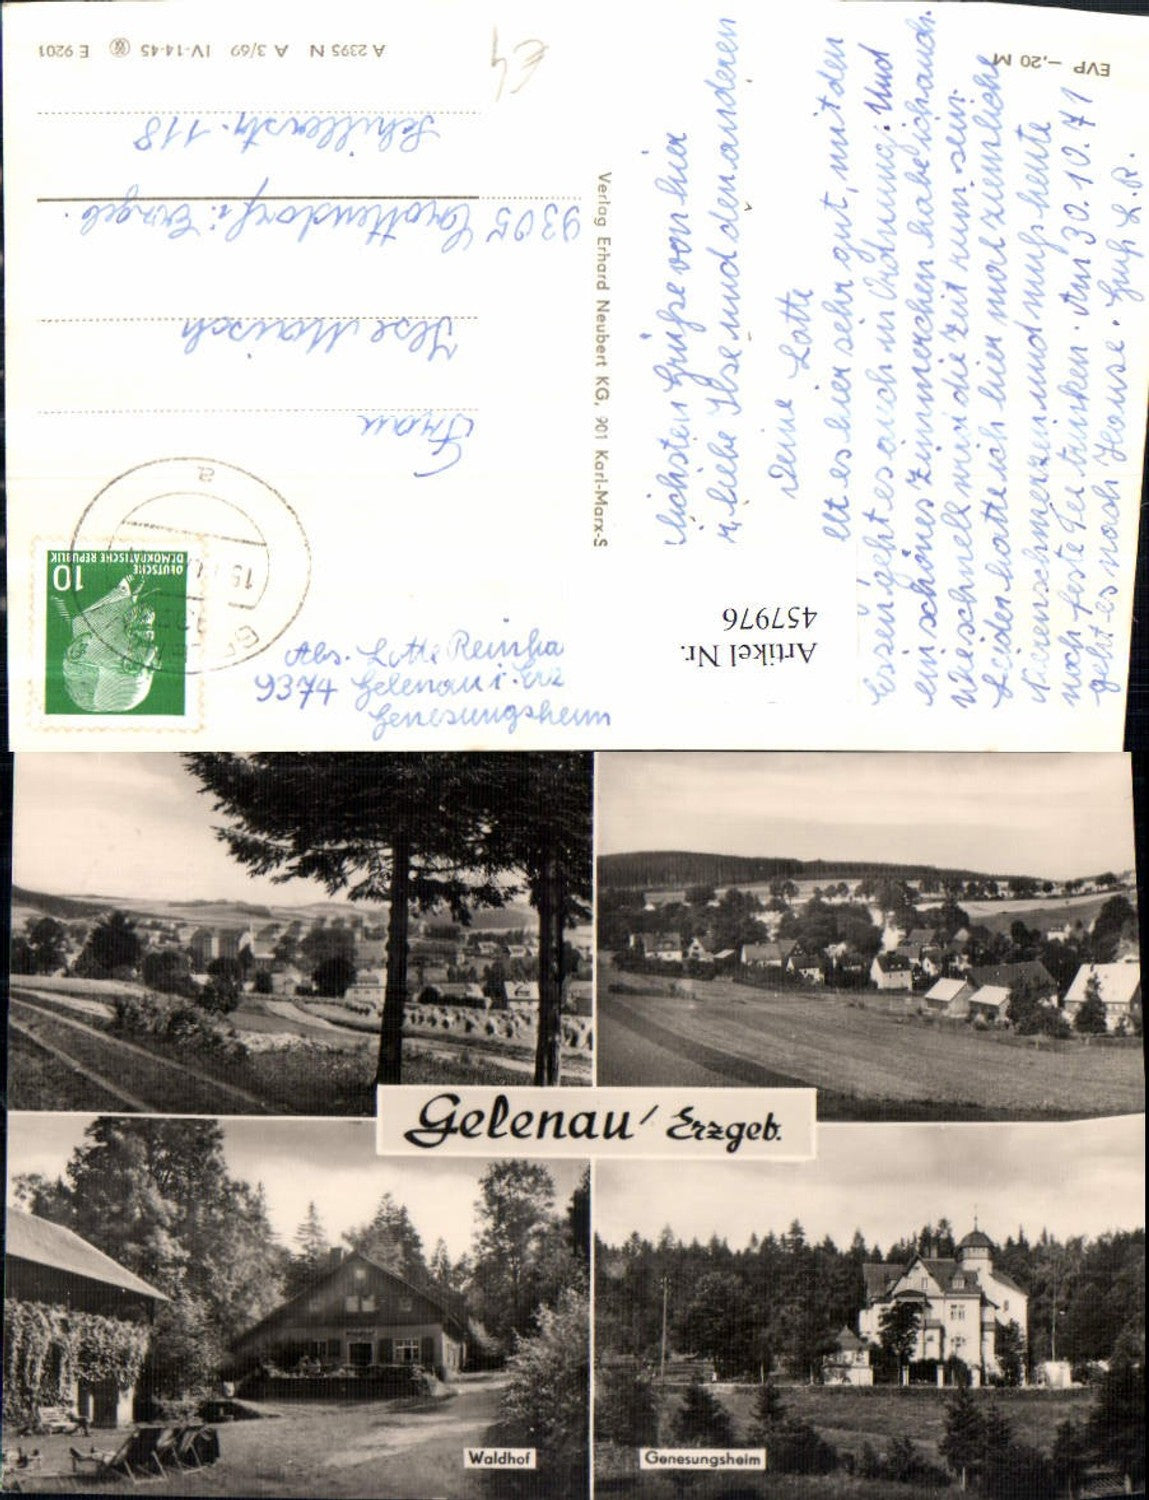 Herzlichsten Grüße von hier
liebe Ilse und den anderen
Deine Lotte
geht es hier sehr gut, mit den
Essen geht es auch in Ordnung. Und
ein schönes Zimmerchen habe ich auch.
Wie schnell wird die Zeit rum sein.
Leider hatte ich hier mal ziemliche
Nierenschmerzen und muß heute
noch feste Tee trinken. Am 30.10.71
geht es nach Hause. Gruß L.R.
EVP –,20 M
Artikel Nr.
457976
Verlag Erhard Neubert KG, 901 Karl-Marx-S
Abs. Lotte Reinha
9374 Gelenau i. Erz
Genesungsheim
DEUTSCHE
DEMOKRATISCHE REPUBLIK
10
Frau
Ilse Maisch
9305 Crottendorf i. Erzgeb.
Schillerstr. 118
A 2395 N A 3/69 IV-14-45 E 9201
Gelenau / Erzgeb.
Waldhof
Genesungsheim